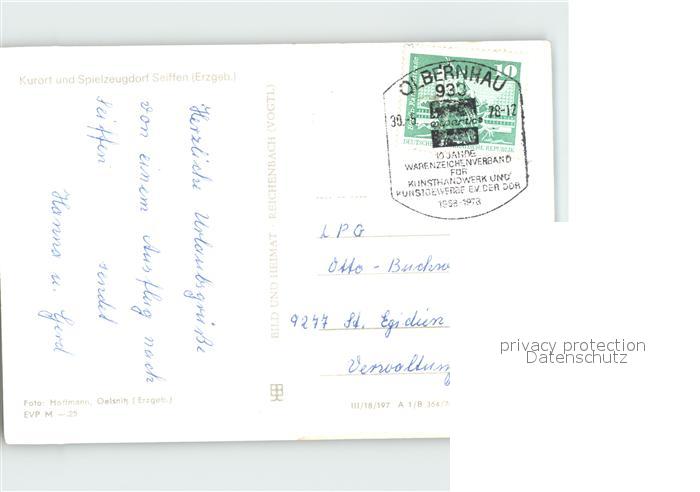 Kurort und Spielzeugdorf Seiffen (Erzgeb.)
Herzliche Urlaubsgrüße
von einem Ausflug nach
Seiffen sendet
Hanna u. Gerd
Foto: Hoffmann, Oelsnitz (Erzgeb.)
EVP M —.25
BILD UND HEIMAT · REICHENBACH (VOGTL)
III/18/197 A 1/B 364/7
10
OLBERNHAU
933
10 JAHRE
WARENZEICHENVERBAND
FÜR
KUNSTHANDWERK UND
KUNSTGEWERBE E.V. DER DDR
1968-1978
LPG
Otto-Buchw
9277 St. Egidien
Verwaltung
privacy protection
Datenschutz